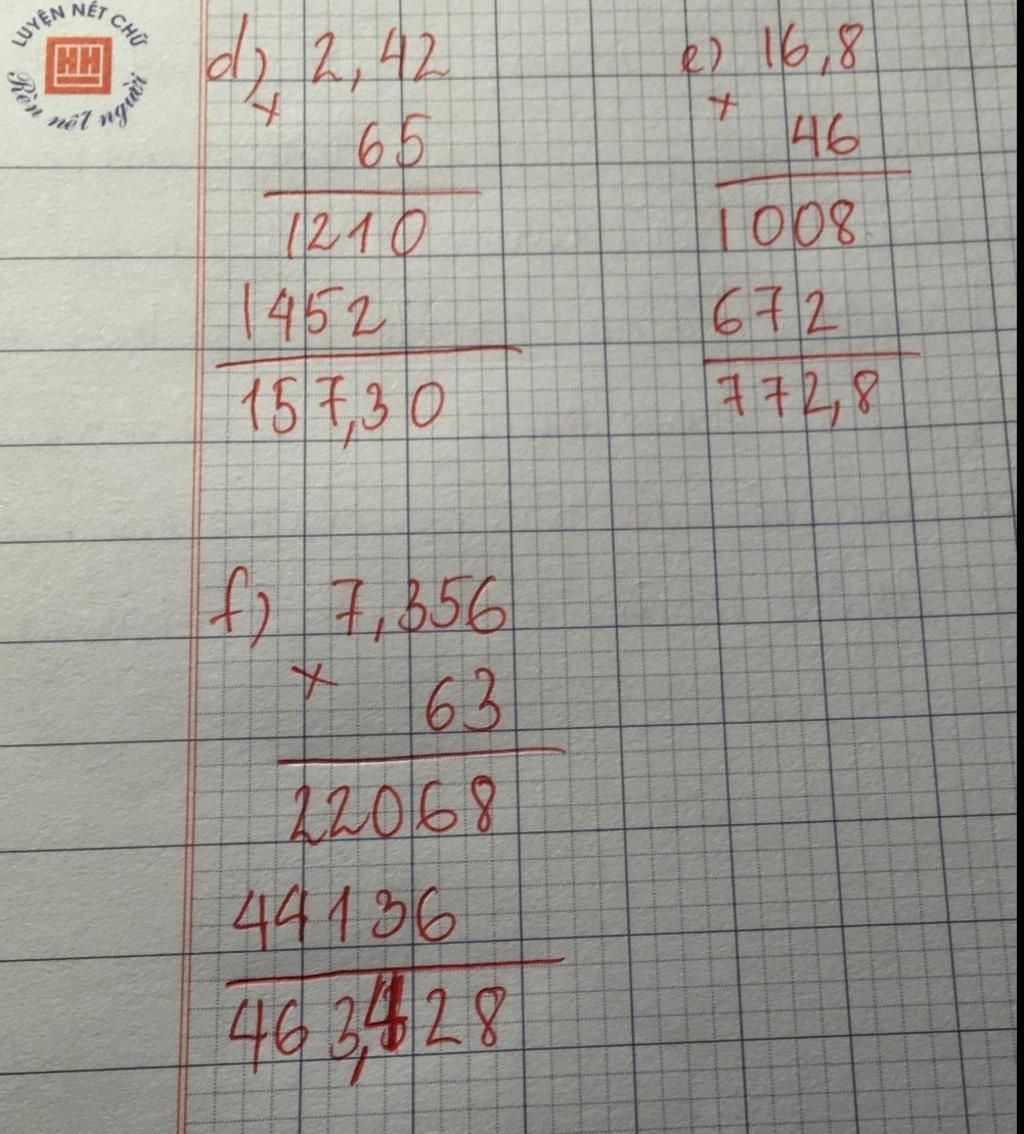 LUYỆN NÉT CHỮ
HH
Rèn nết người
d) 2,42
×
65
1210
1452
157,30
e) 16,8
×
46
1008
672
772,8
f) 7,356
×
63
22068
44136
463,428